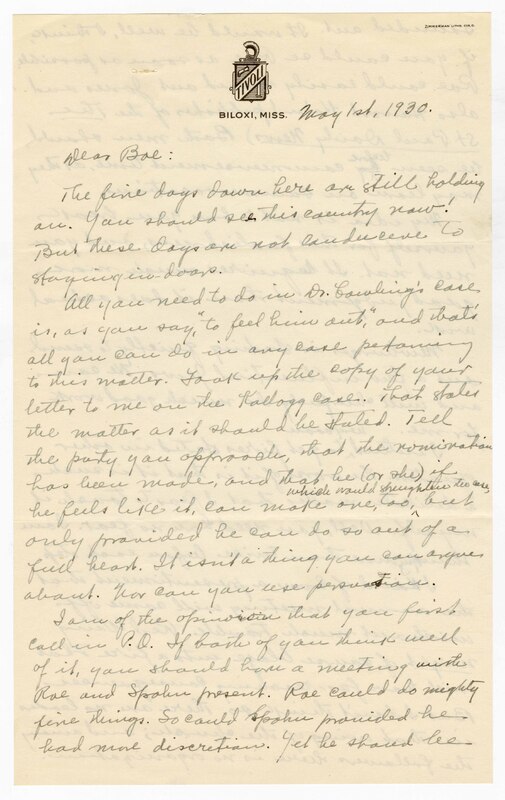 ZIMMERMAN LITHO. CIN. O.
TIVOLI
BILOXI, MISS.
May 1st, 1930.
Dear Boe:
The fine days down here are still holding
on. You should see this country now!
But these days are not conduceve to
staying in doors.
All you need to do in Dr. Cowling's case
is, as you say, "to feel him out," and that's
all you can do in any case pertaining
to this matter. Look up the copy of your
letter to me on the Kellogg case. That states
the matter as it should be stated. Tell
the party you approach, that the nomination
has been made, and that he (or she) if
which would strengthen the case,
he feels like it, can make one, too, but
only provided he can do so out of a
full heart. It isn't a thing you can argue
about. Nor can you use persuasion.
I am of the opinion that you first
call in P.O. If both of you think well
of it, you should have a meeting with
Roe and Spohn present. Roe could do mighty
fine things. So could Spohn provided he
had more discretion. Yet he should be